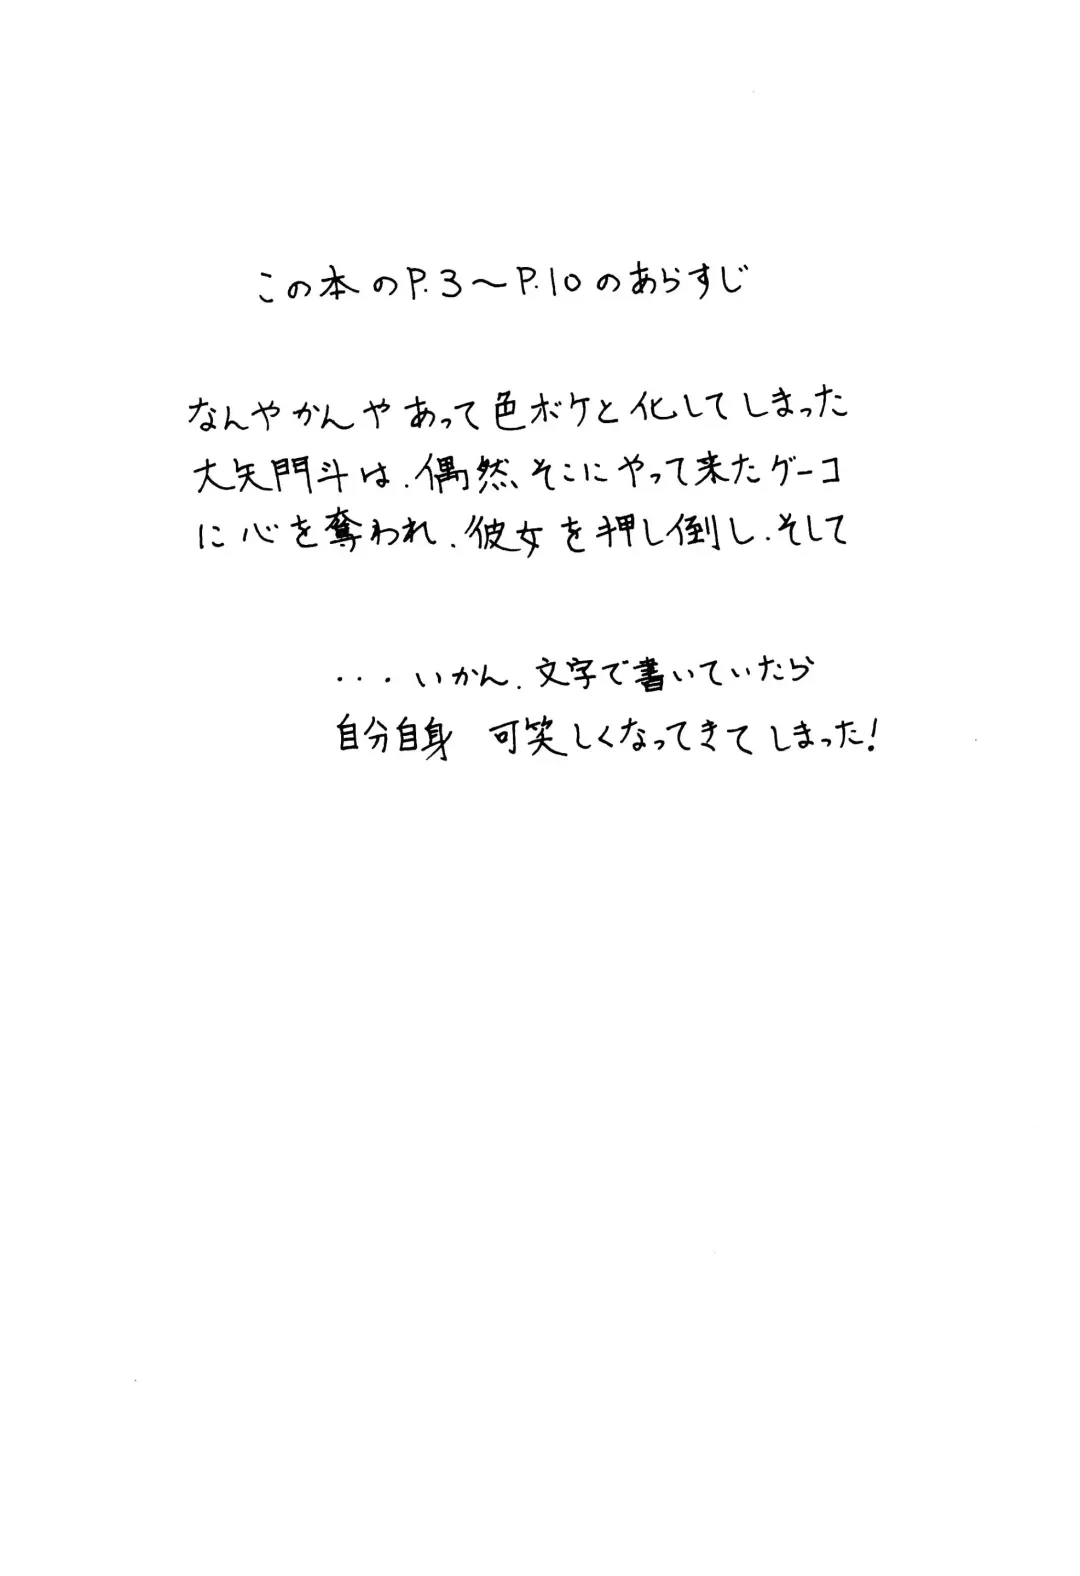 この本のP.3～P.10のあらすじ
なんやかんやあって色ボケと化してしまった
大矢門斗は、偶然、そこにやって来たゲーコ
に心を奪われ、彼女を押し倒し、そして
・・・いかん、文字で書いていたら
自分自身 可笑しくなってきてしまった!